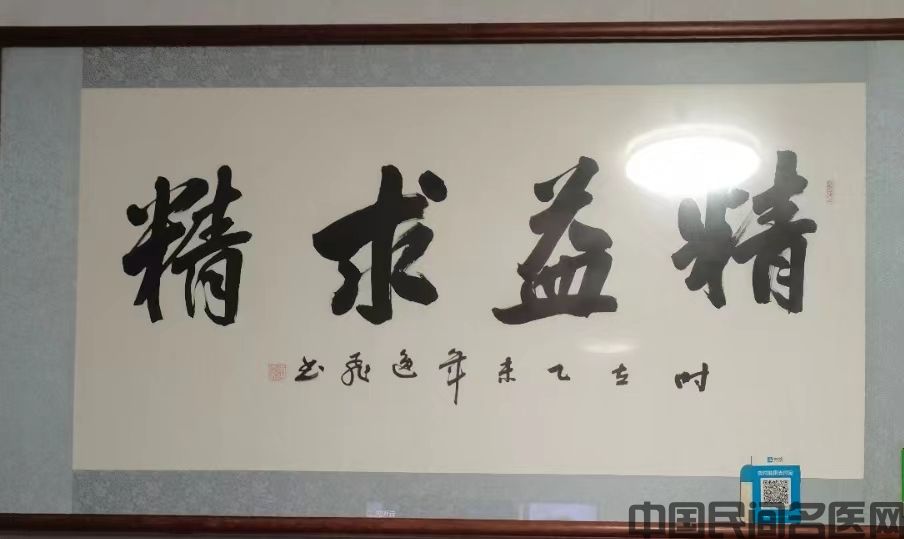 精益求精
时在乙未年逸飞书
中国民间名医网